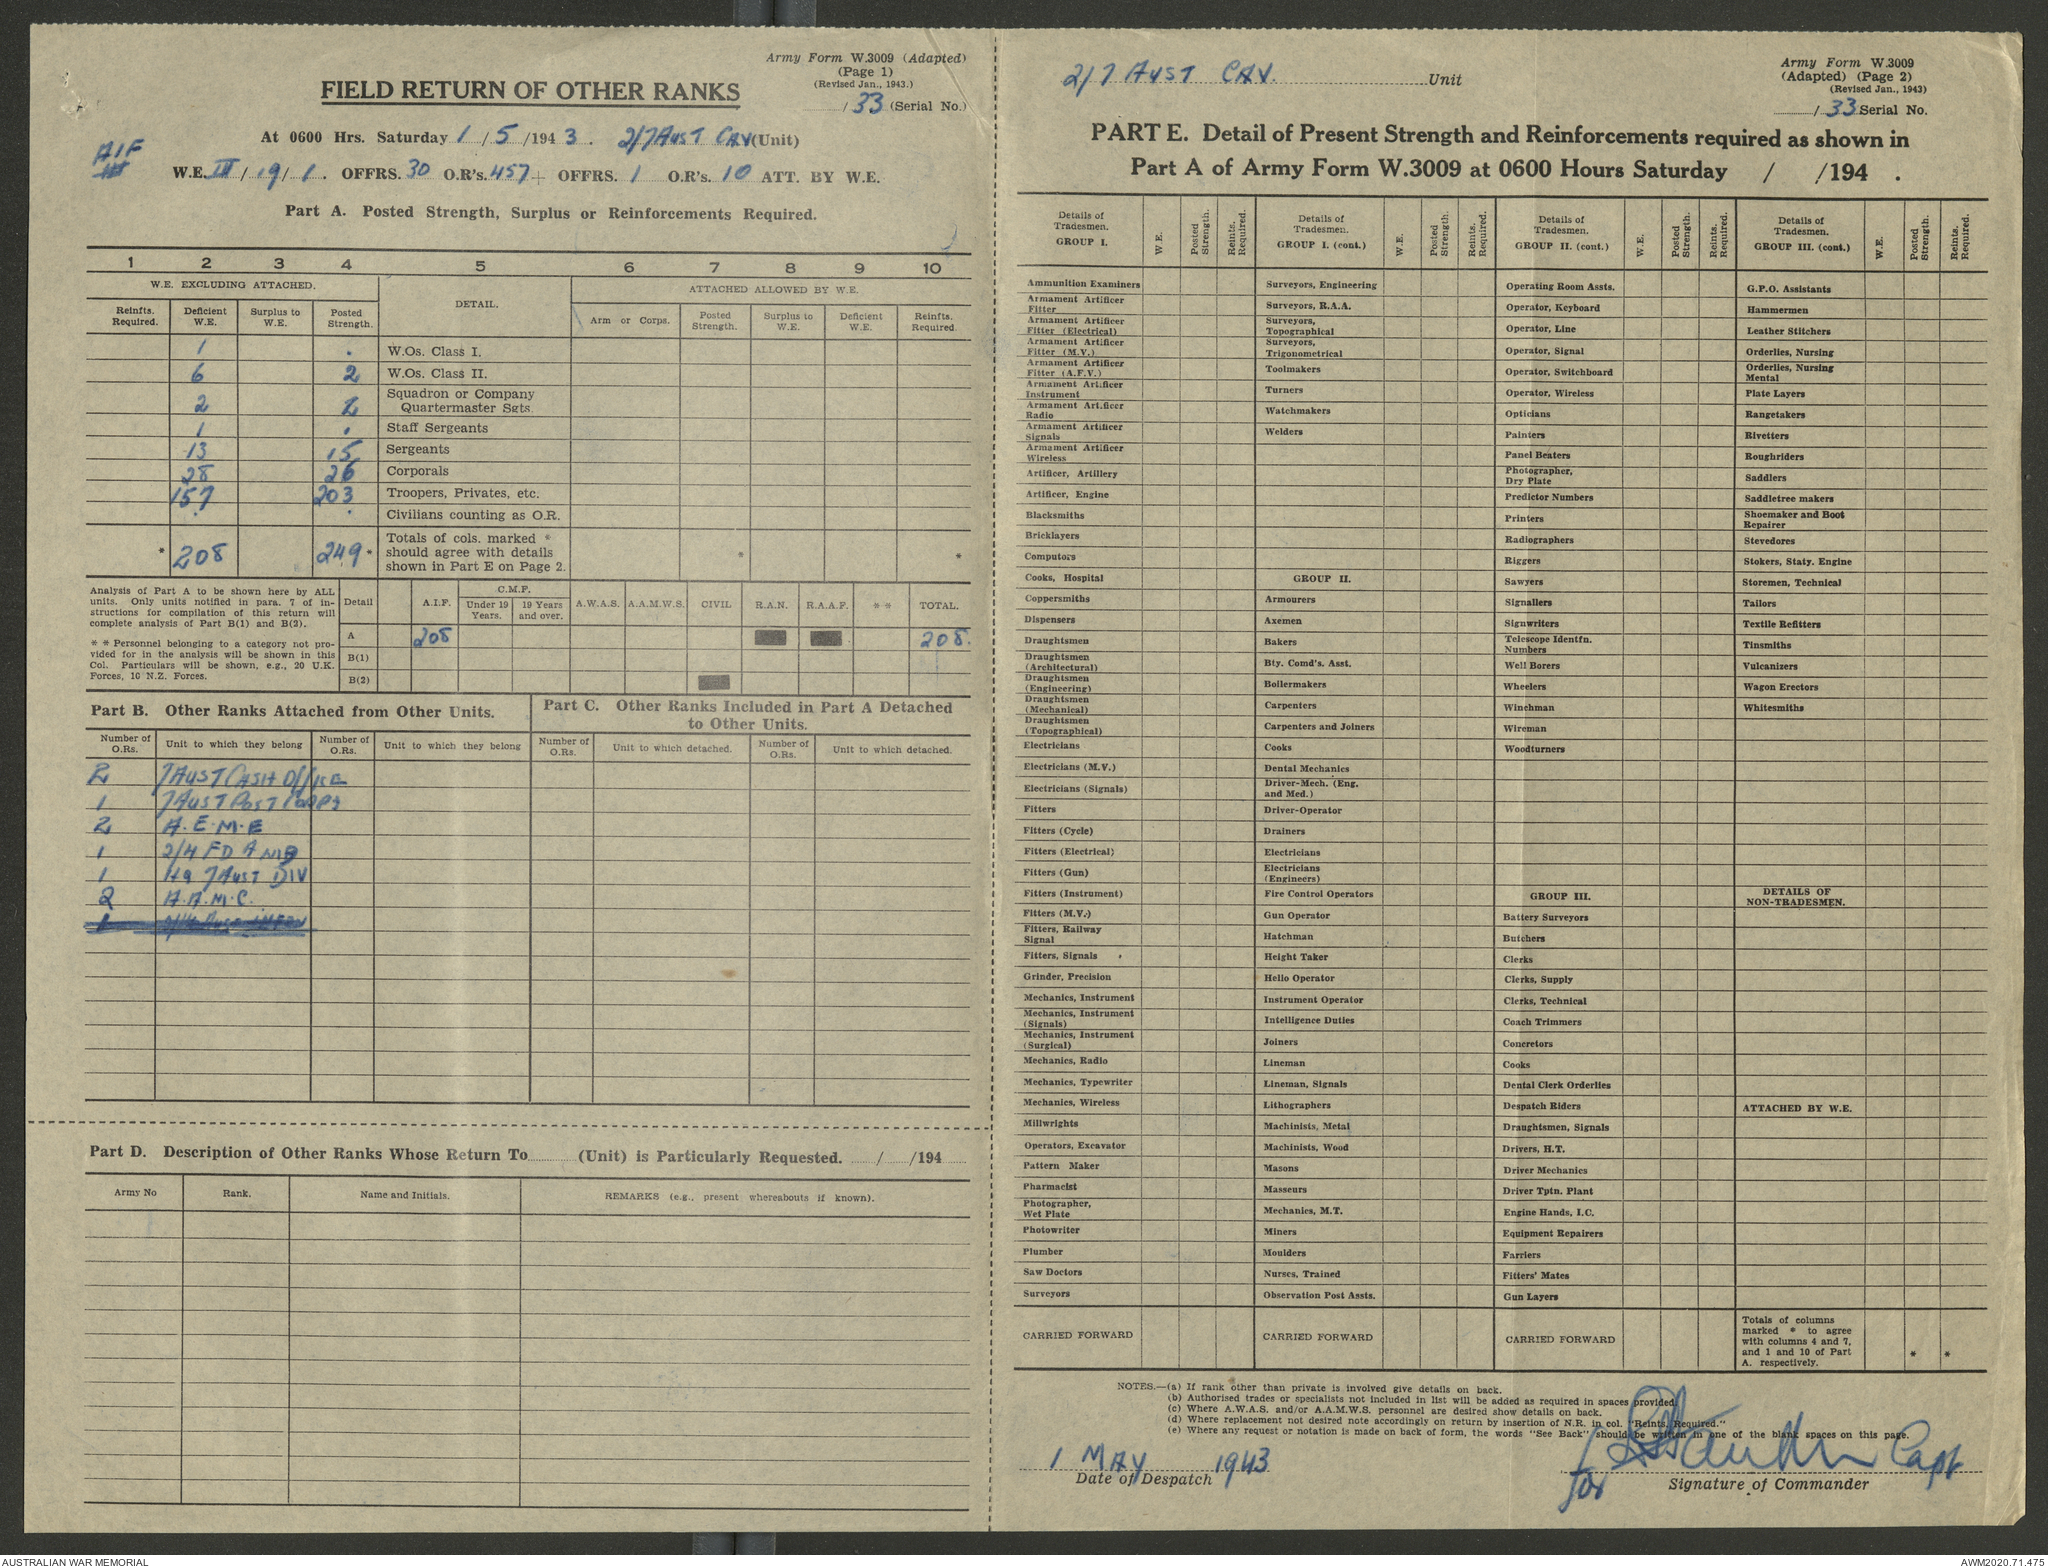 Army Form W.3009 (Adapted)
(Page 1)
(Revised Jan., 1943.)
/ 33 (Serial No.)
FIELD RETURN OF OTHER RANKS
At 0600 Hrs. Saturday 1 / 5 /194 3 . 2/7 AUST CAV (Unit)
AIF
W.E. III / 19 / 1 . OFFRS. 30 O.R's. 457 + OFFRS. 1 O.R's. 10 ATT. BY W.E.
Part A. Posted Strength, Surplus or Reinforcements Required.
1 2 3 4 5 6 7 8 9 10
W.E. EXCLUDING ATTACHED. DETAIL. ATTACHED ALLOWED BY W.E.
Reinfts. Required. Deficient W.E. Surplus to W.E. Posted Strength. Arm or Corps. Posted Strength. Surplus to W.E. Deficient W.E. Reinfts. Required.
1 . W.Os. Class I.
6 2 W.Os. Class II.
2 2 Squadron or Company Quartermaster Sgts.
1 . Staff Sergeants
13 15 Sergeants
28 26 Corporals
157 203 Troopers, Privates, etc.
. . Civilians counting as O.R.
* 208 249 * Totals of cols. marked * should agree with details shown in Part E on Page 2. * *
Analysis of Part A to be shown here by ALL units. Only units notified in para. 7 of instructions for compilation of this return will complete analysis of Part B(1) and B(2).
* * Personnel belonging to a category not provided for in the analysis will be shown in this Col. Particulars will be shown, e.g., 20 U.K. Forces, 10 N.Z. Forces.
Detail A.I.F. C.M.F. Under 19 Years. 19 Years and over. A.W.A.S. A.A.M.W.S. CIVIL R.A.N. R.A.A.F. * * TOTAL.
A 208 208.
B(1)
B(2)
Part B. Other Ranks Attached from Other Units.
Part C. Other Ranks Included in Part A Detached to Other Units.
Number of O.Rs. Unit to which they belong Number of O.Rs. Unit to which they belong Number of O.Rs. Unit to which detached. Number of O.Rs. Unit to which detached.
2 7 AUST CASH OFFICE
1 7 AUST POST CORPS
2 A.E.M.E
1 2/4 FD AMB
1 HQ 7 AUST DIV
2 A.A.M.C.
Part D. Description of Other Ranks Whose Return To (Unit) is Particularly Requested. / /194
Army No Rank. Name and Initials. REMARKS (e.g., present whereabouts if known).
2/7 AUST CAV. Unit
Army Form W.3009
(Adapted) (Page 2)
(Revised Jan., 1943)
/ 33 Serial No.
PART E. Detail of Present Strength and Reinforcements required as shown in
Part A of Army Form W.3009 at 0600 Hours Saturday / /194 .
Details of Tradesmen. GROUP I. W.E. Posted Strength. Reints. Required.
Ammunition Examiners
Armament Artificer Fitter
Armament Artificer Fitter (Electrical)
Armament Artificer Fitter (M.V.)
Armament Artificer Fitter (A.F.V.)
Armament Artificer Instrument
Armament Artificer Radio
Armament Artificer Signals
Armament Artificer Wireless
Artificer, Artillery
Artificer, Engine
Blacksmiths
Bricklayers
Computors
Cooks, Hospital
Coppersmiths
Dispensers
Draughtsmen
Draughtsmen (Architectural)
Draughtsmen (Engineering)
Draughtsmen (Mechanical)
Draughtsmen (Topographical)
Electricians
Electricians (M.V.)
Electricians (Signals)
Fitters
Fitters (Cycle)
Fitters (Electrical)
Fitters (Gun)
Fitters (Instrument)
Fitters (M.V.)
Fitters, Railway Signal
Fitters, Signals
Grinder, Precision
Mechanics, Instrument
Mechanics, Instrument (Signals)
Mechanics, Instrument (Surgical)
Mechanics, Radio
Mechanics, Typewriter
Mechanics, Wireless
Millwrights
Operators, Excavator
Pattern Maker
Pharmacist
Photographer, Wet Plate
Photowriter
Plumber
Saw Doctors
Surveyors
CARRIED FORWARD
Details of Tradesmen. GROUP I. (cont.) W.E. Posted Strength. Reints. Required.
Surveyors, Engineering
Surveyors, R.A.A.
Surveyors, Topographical
Surveyors, Trigonometrical
Toolmakers
Turners
Watchmakers
Welders
GROUP II.
Armourers
Axemen
Bakers
Bty. Comd's. Asst.
Boilermakers
Carpenters
Carpenters and Joiners
Cooks
Dental Mechanics
Driver-Mech. (Eng. and Med.)
Driver-Operator
Drainers
Electricians
Electricians (Engineers)
Fire Control Operators
Gun Operator
Hatchman
Height Taker
Helio Operator
Instrument Operator
Intelligence Duties
Joiners
Lineman
Lineman, Signals
Lithographers
Machinists, Metal
Machinists, Wood
Masons
Masseurs
Mechanics, M.T.
Miners
Moulders
Nurses, Trained
Observation Post Assts.
CARRIED FORWARD
Details of Tradesmen. GROUP II. (cont.) W.E. Posted Strength. Reints. Required.
Operating Room Assts.
Operator, Keyboard
Operator, Line
Operator, Signal
Operator, Switchboard
Operator, Wireless
Opticians
Painters
Panel Beaters
Photographer, Dry Plate
Predictor Numbers
Printers
Radiographers
Riggers
Sawyers
Signallers
Signwriters
Telescope Identfn. Numbers
Well Borers
Wheelers
Winchman
Wireman
Woodturners
GROUP III.
Battery Surveyors
Butchers
Clerks
Clerks, Supply
Clerks, Technical
Coach Trimmers
Concretors
Cooks
Dental Clerk Orderlies
Despatch Riders
Draughtsmen, Signals
Drivers, H.T.
Driver Mechanics
Driver Tptn. Plant
Engine Hands, I.C.
Equipment Repairers
Farriers
Fitters' Mates
Gun Layers
CARRIED FORWARD
Details of Tradesmen. GROUP III. (cont.) W.E. Posted Strength. Reints. Required.
G.P.O. Assistants
Hammermen
Leather Stitchers
Orderlies, Nursing
Orderlies, Nursing Mental
Plate Layers
Rangetakers
Rivetters
Roughriders
Saddlers
Saddletree makers
Shoemaker and Boot Repairer
Stevedores
Stokers, Staty. Engine
Storemen, Technical
Tailors
Textile Refitters
Tinsmiths
Vulcanizers
Wagon Erectors
Whitesmiths
DETAILS OF NON-TRADESMEN.
ATTACHED BY W.E.
Totals of columns marked * to agree with columns 4 and 7, and 1 and 10 of Part A. respectively. * *
NOTES.—(a) If rank other than private is involved give details on back.
(b) Authorised trades or specialists not included in list will be added as required in spaces provided.
(c) Where A.W.A.S. and/or A.A.M.W.S. personnel are desired show details on back.
(d) Where replacement not desired note accordingly on return by insertion of N.R. in col. "Reints. Required."
(e) Where any request or notation is made on back of form, the words "See Back" should be written in one of the blank spaces on this page.
1 MAY 1943
Date of Despatch
for Capt
Signature of Commander
AUSTRALIAN WAR MEMORIAL
AWM2020.71.475